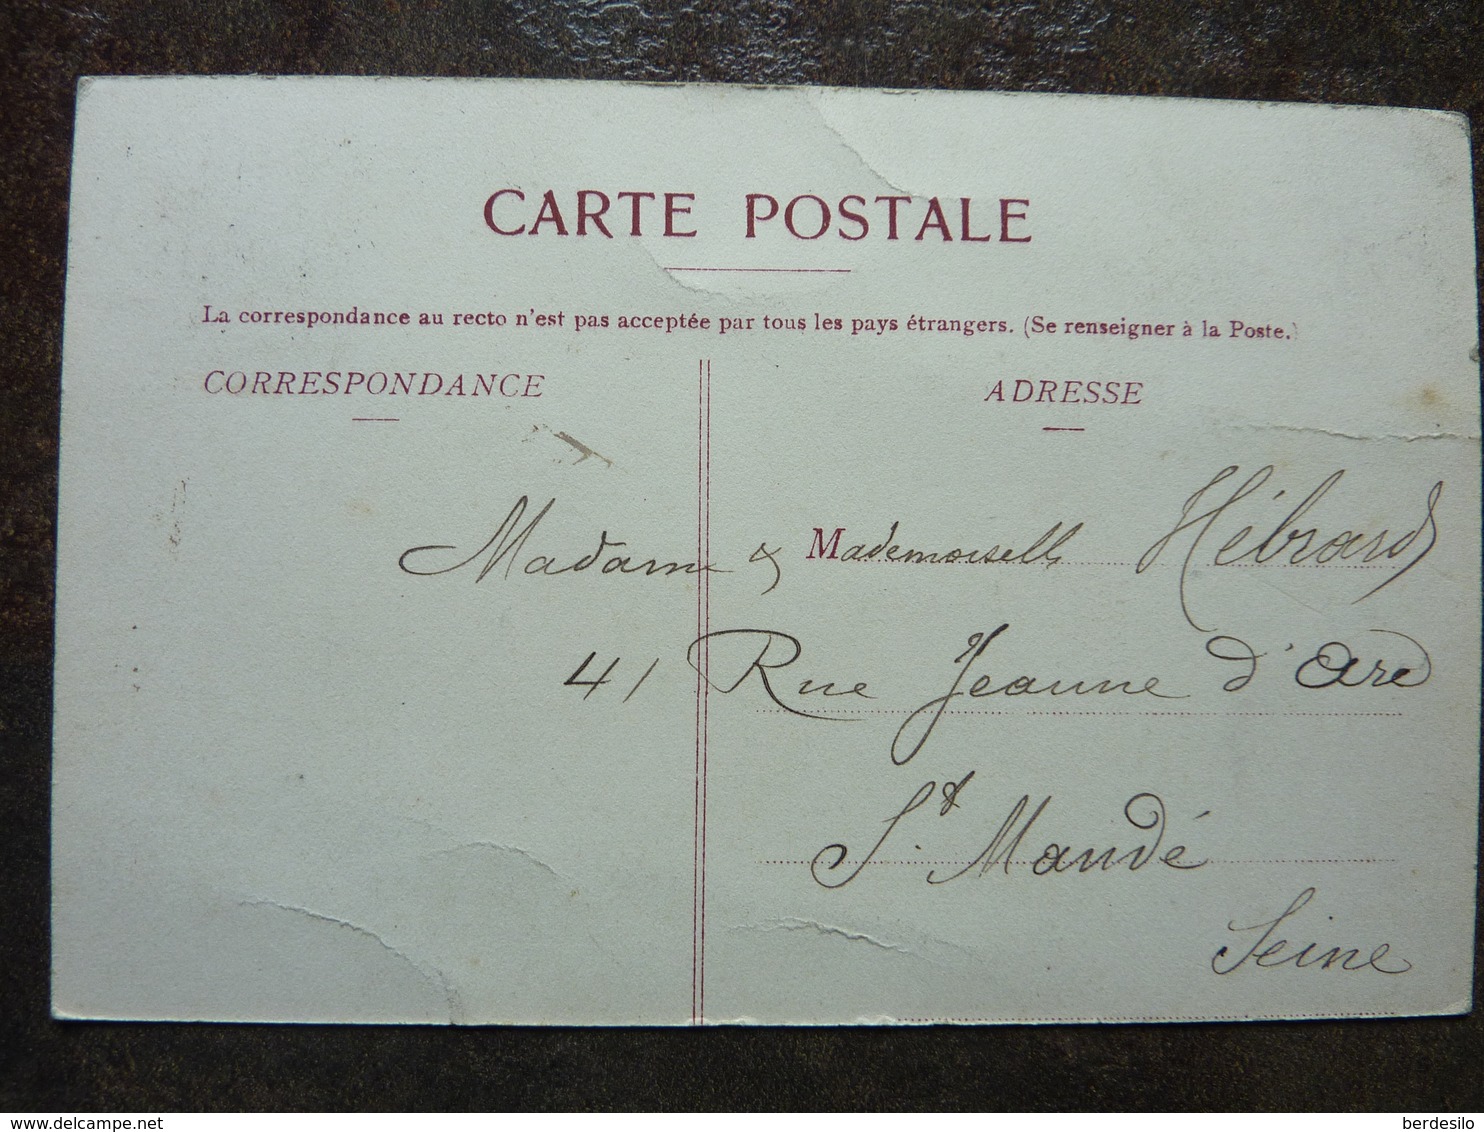 CARTE POSTALE
La correspondance au recto n'est pas acceptée par tous les pays étrangers. (Se renseigner à la Poste.)
CORRESPONDANCE
ADRESSE
Madame & Mademoiselle Hébrard
41 Rue Jeanne d'Arc
St. Mandé
Seine
delcampe.net
berdesilo